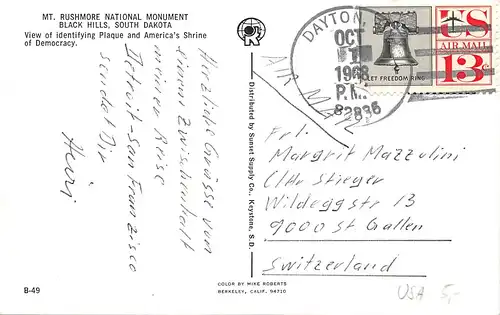 MT. RUSHMORE NATIONAL MONUMENT
BLACK HILLS, SOUTH DAKOTA
View of identifying Plaque and America's Shrine
of Democracy.
Herzliche Grüsse von
einem Zwischenhalt
meiner Reise
Detroit-San Franzisco
sendet Dir
Heiri
B-49
Distributed by Sunset Supply Co., Keystone, S.D.
COLOR BY MIKE ROBERTS
BERKELEY, CALIF. 94710
DAYTON,
OCT
1
P.M.
AIR MAIL
LET FREEDOM RING
US
AIR MAIL
13¢
Frl.
Margrit Mazzolini
C/Hr Stieger
Wildeggstr 13
9000 St Gallen
Switzerland
USA 5,-